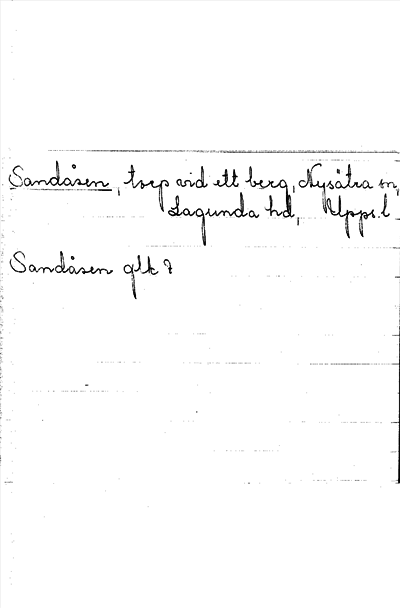 Sandåsen, torp vid ett berg, Nysätra sn,
Lagunda hd, Upps. l
Sandåsen glk ?